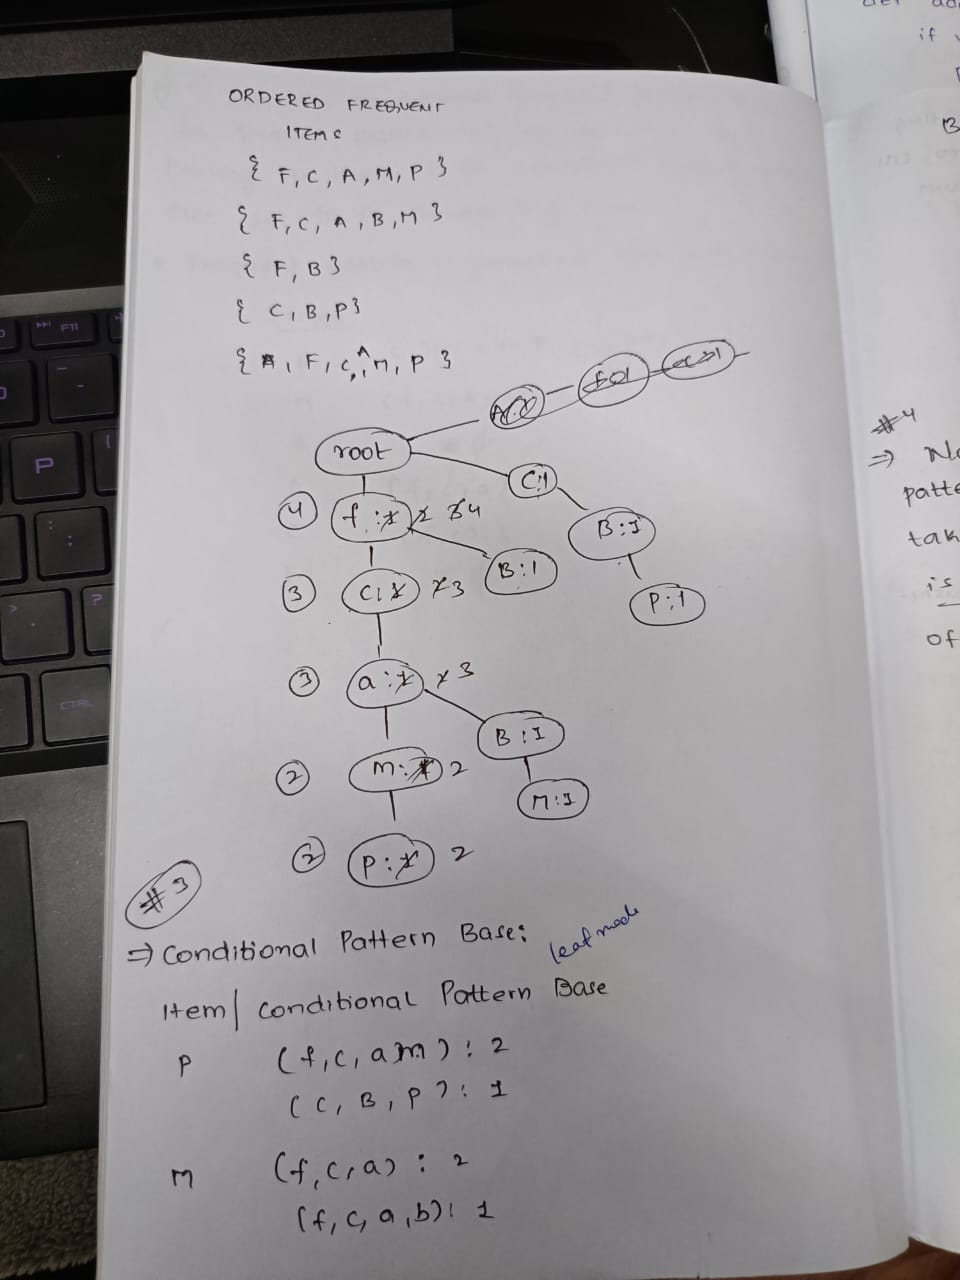 ORDERED FREQUENT
ITEMS
{ F, C, A, M, P }
{ F, C, A, B, M }
{ F, B }
{ C, B, P }
{ A, F, C, A, M, P }
root
C:1
4 f: 2 4
B:1
B:1
3 C: 3
P:1
3 a: 3
B:1
2 m: 2
M:1
2 P: 2
#3
⇒ Conditional Pattern Base:
leaf node
Item | Conditional Pattern Base
P (f, c, a m) : 2
(C, B, P) : 1
m (f, c, a) : 2
(f, c, a, b) : 1
if
B
#4
⇒ No
patte
tak
is
of
F11
P
CTRL